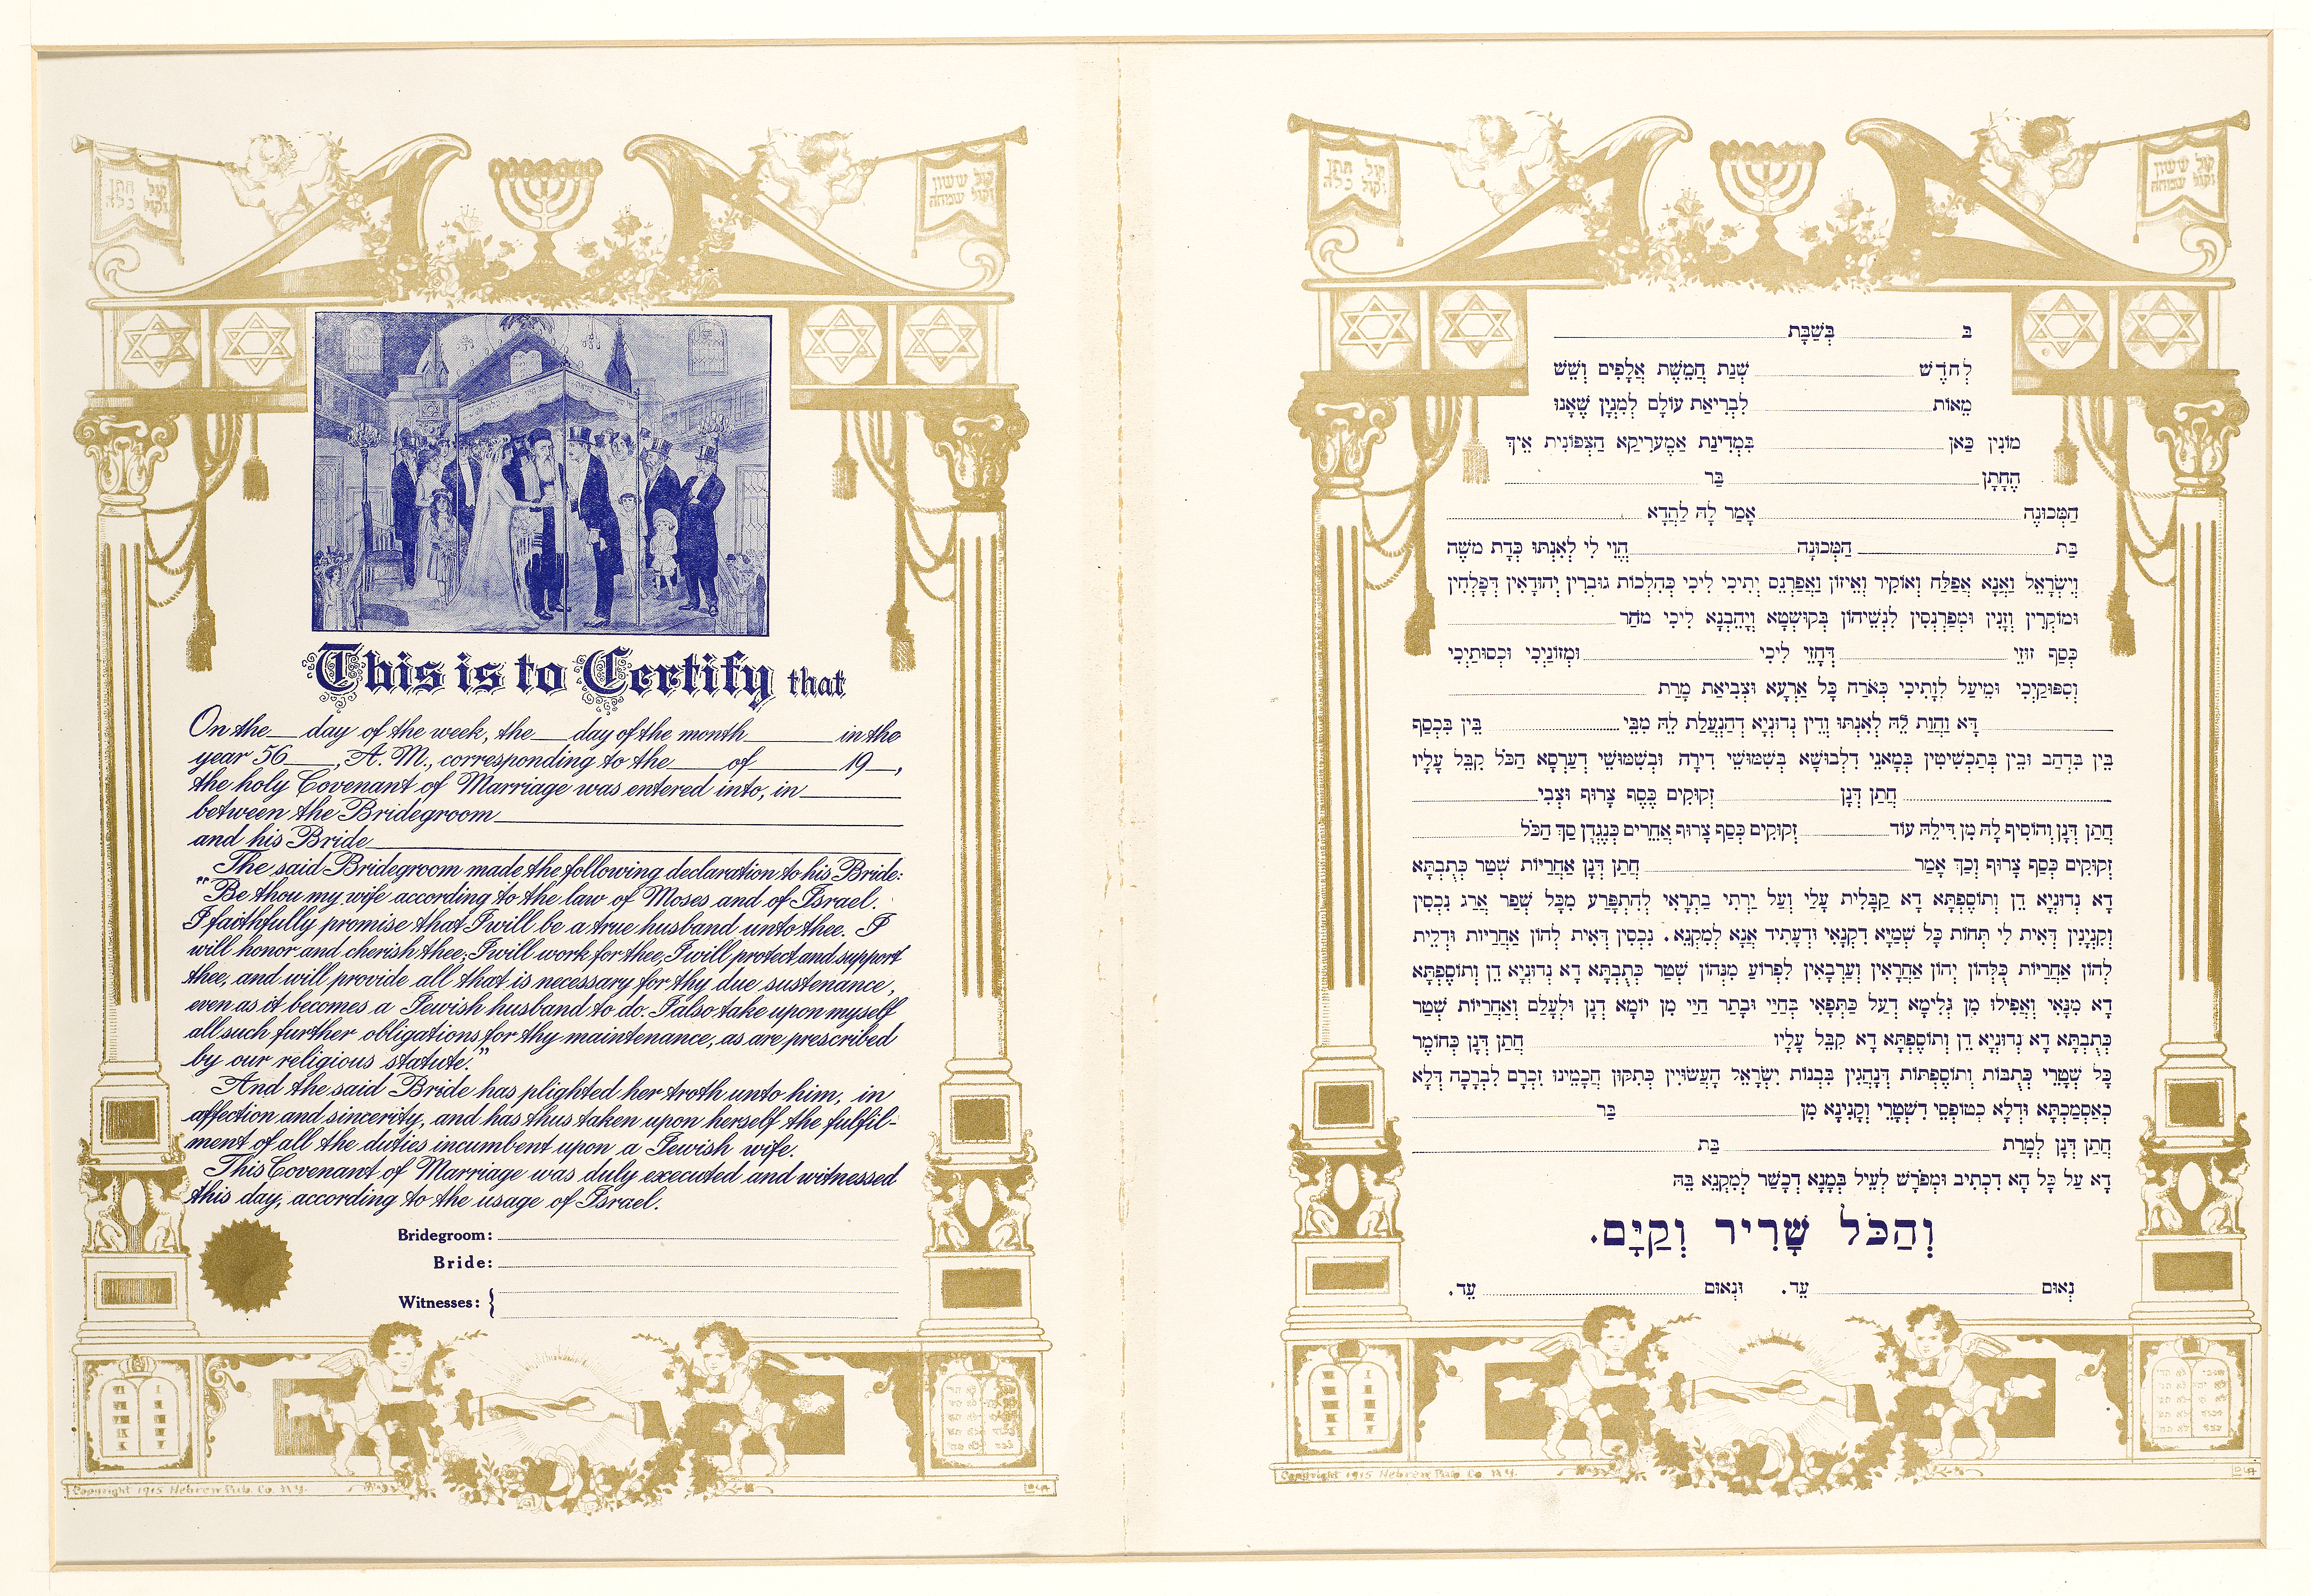 קול חתן
וקול כלה
קול ששון
וקול שמחה
This is to Certify that
On the___day of the week, the___day of the month________in the
year 56____, A. M., corresponding to the____of________19__,
the holy Covenant of Marriage was entered into, in__________
between the Bridegroom__________
and his Bride__________
The said Bridegroom made the following declaration to his Bride:
"Be thou my wife according to the law of Moses and of Israel.
I faithfully promise that I will be a true husband unto thee. I
will honor and cherish thee; I will work for thee; I will protect and support
thee, and will provide all that is necessary for thy due sustenance,
even as it becomes a Jewish husband to do. I also take upon myself
all such further obligations for thy maintenance, as are prescribed
by our religious statute."
And the said Bride has plighted her troth unto him, in
affection and sincerity, and has thus taken upon herself the fulfil-
ment of all the duties incumbent upon a Jewish wife.
This Covenant of Marriage was duly executed and witnessed
this day, according to the usage of Israel.
Bridegroom:
Bride:
Witnesses:
Copyright 1915 Hebrew Pub. Co. N.Y.
קול חתן
וקול כלה
קול ששון
וקול שמחה
ב__________בְּשַׁבָּת__________
לְחֹדֶשׁ__________שְׁנַת חֲמֵשֶׁת אֲלָפִים וְשֵׁשׁ
מֵאוֹת__________לִבְרִיאַת עוֹלָם לְמִנְיָן שֶׁאָנוּ
מוֹנִין כַּאן__________בִּמְדִינַת אַמֶערִיקַא הַצְּפוֹנִית אֵיךְ
הֶחָתָן__________בַּר__________
הַמְּכוּנֶה__________אֲמַר לָהּ לַהֲדָא__________
בַּת__________הַמְּכוּנָה__________הֱוִי לִי לְאִנְתּוּ כְּדַת מֹשֶׁה
וְיִשְׂרָאֵל וַאֲנָא אֶפְלַח וְאוֹקִיר וְאֵיזוֹן וַאֲפַרְנֵס יָתִיכִי לִיכִי כְּהִלְכוֹת גּוּבְרִין יְהוּדָאִין דְּפָלְחִין
וּמוֹקְרִין וְזָנִין וּמְפַרְנְסִין לִנְשֵׁיהוֹן בְּקוּשְׁטָא וְיָהֵבְנָא לִיכִי מֹהַר__________
כְּסַף זוּזֵי__________דְּחָזֵי לִיכִי__________וּמְזוֹנַיְכִי וּכְסוּתַיְכִי
וְסִפּוּקַיְכִי וּמֵיעַל לְוָתֵיכִי כְּאֹרַח כָּל אַרְעָא וּצְבִיאַת מָרַת__________
__________דָּא וַהֲוַת לֵהּ לְאִנְתּוּ וְדֵין נְדוּנְיָא דְהַנְעֲלַת לֵהּ מִבֵּי__________בֵּין בִּכְסַף
בֵּין בִּדְהַב וּבֵין בְּתַכְשִׁיטִין בְּמָאנֵי דִלְבוּשָׁא בְּשִׁמּוּשֵׁי דִירָה וּבְשִׁמּוּשֵׁי דְעַרְסָא הַכֹּל קִבֵּל עָלָיו
__________חֲתַן דְּנָן__________זְקוּקִים כֶּסֶף צָרוּף וּצְבִי__________
חֲתַן דְּנָן וְהוֹסִיף לָהּ מִן דִּילֵהּ עוֹד__________זְקוּקִים כְּסַף צָרוּף אֲחֵרִים כְּנֶגְדָן סַךְ הַכֹּל__________
זְקוּקִים כְּסַף צָרוּף וְכָךְ אֲמַר__________חֲתַן דְּנָן אַחֲרָיוּת שְׁטַר כְּתֻבְתָּא
דָא נְדוּנְיָא דֵן וְתוֹסֶפְתָּא דָא קַבָּלִית עָלַי וְעַל יַרְתַי בַּתְרָאִי לְהִתְפָּרַע מִכָּל שְׁפַר אֲרַג נִכְסִין
וְקִנְיָנִין דְּאִית לִי תְּחוֹת כָּל שְׁמַיָּא דִּקְנָאִי וּדְעָתִיד אֲנָא לְמִקְנֵא. נִכְסִין דְּאִית לְהוֹן אַחֲרָיוּת וּדְלֵית
לְהוֹן אַחֲרָיוּת כֻּלְּהוֹן יְהוֹן אַחֲרָאִין וְעַרְבָאִין לִפְרוֹעַ מִנְּהוֹן שְׁטַר כְּתֻבְתָּא דָא נְדוּנְיָא דֵן וְתוֹסֶפְתָּא
דָא מִנָּאִי וַאֲפִילוּ מִן גְּלִימָא דְעַל כַּתְפָאִי בְּחַיַּי וּבָתַר חַיַּי מִן יוֹמָא דְנָן וּלְעָלַם וְאַחֲרָיוּת שְׁטַר
כְּתֻבְתָּא דָא נְדוּנְיָא דֵן וְתוֹסֶפְתָּא דָא קִבֵּל עָלָיו__________חֲתַן דְּנָן כְּחוֹמֶר
כָּל שְׁטָרֵי כְּתֻבּוֹת וְתוֹסֶפְתּוֹת דְּנָהֲגִין בִּבְנוֹת יִשְׂרָאֵל הָעֲשׂוּיִין כְּתִקּוּן חֲכָמֵינוּ זִכְרָם לִבְרָכָה דְּלָא
כְאַסְמַכְתָּא וּדְלָא כְטוּפְסֵי דִשְׁטָרֵי וְקָנִינָא מִן__________בַּר__________
חֲתַן דְּנָן לְמָרַת__________בַּת__________
דָא עַל כָּל הָא דִכְתִיב וּמְפֹרָשׁ לְעֵיל בְּמָנָא דְכָשַׁר לְמִקְנֵא בֵּהּ
וְהַכֹּל שָׁרִיר וְקַיָּם.
נְאוּם__________עֵד. וּנְאוּם__________עֵד.
Copyright 1915 Hebrew Pub. Co. N.Y.